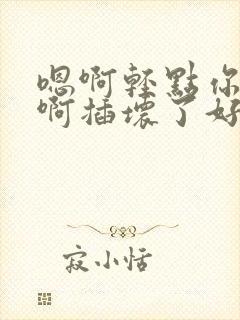 嗯啊轻點你
啊插壞了好
寂小恬